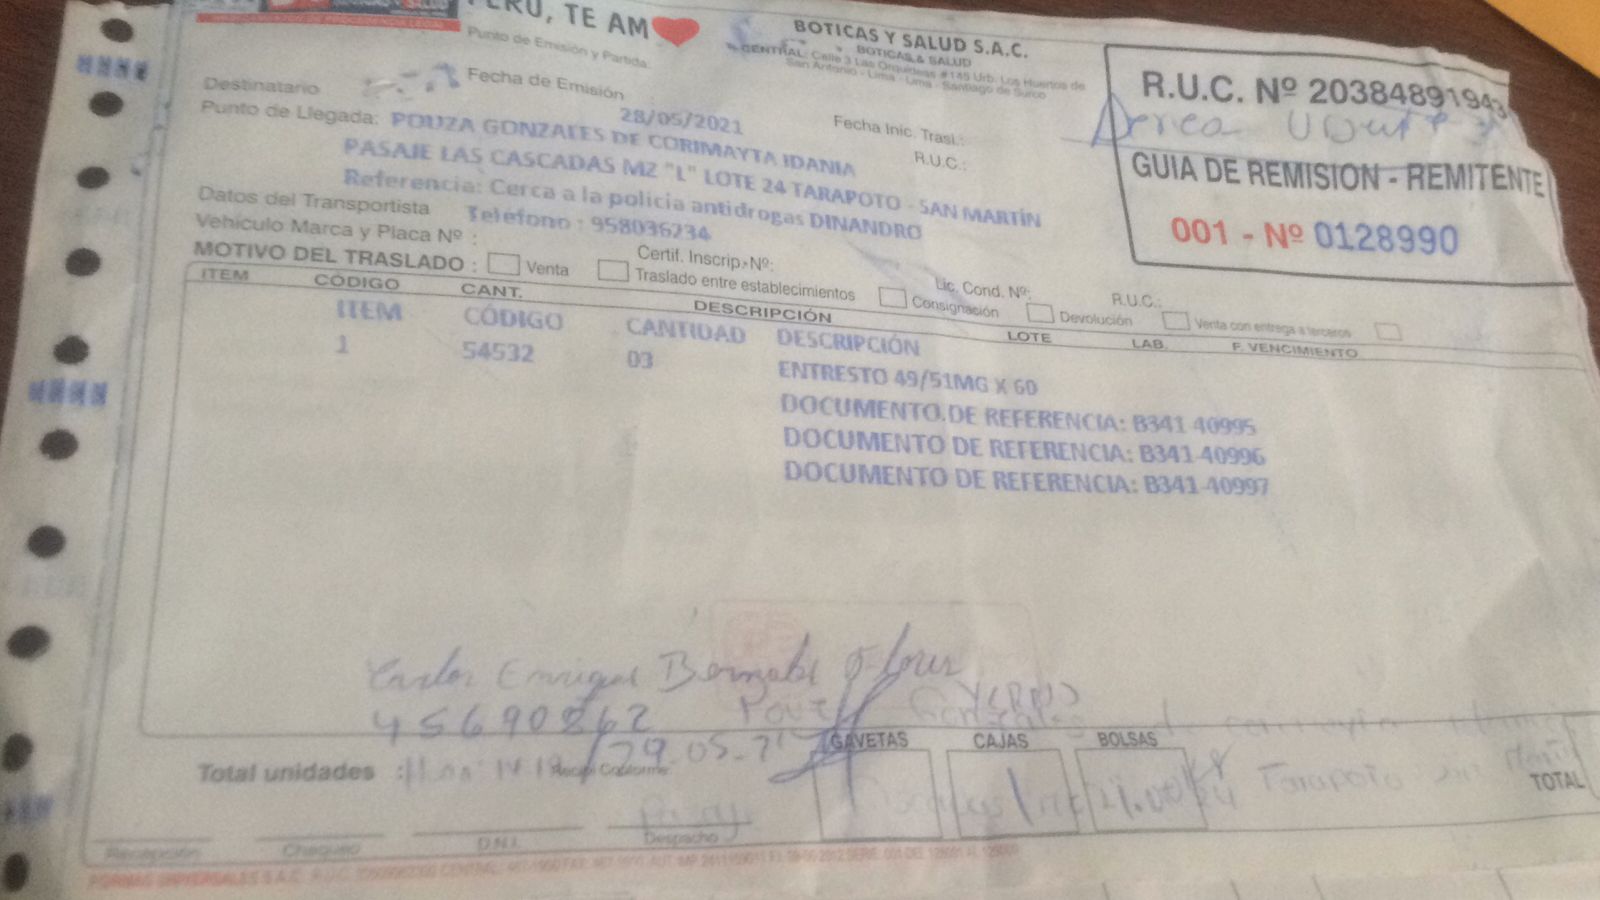 PERU, TE AM
Punto de Emisión y Partida:
BOTICAS Y SALUD S.A.C.
BOTICAS & SALUD
CENTRAL: Calle 3 Las Orquideas #145 Urb. Los Huertos de
San Antonio - Lima - Lima - Santiago de Surco
R.U.C. Nº 20384891943
GUIA DE REMISION - REMITENTE
001 - Nº 0128990
Destinatario
Fecha de Emisión
28/05/2021
Fecha Inic. Trasl.:
Punto de Llegada: POUZA GONZALES DE CORIMAYTA IDANIA
R.U.C.:
PASAJE LAS CASCADAS MZ "L" LOTE 24 TARAPOTO - SAN MARTÍN
Referencia: Cerca a la policia antidrogas DINANDRO
Datos del Transportista
Teléfono : 958036234
Vehículo Marca y Placa Nº :
Certif. Inscrip. Nº:
Lic. Cond. Nº:
R.U.C.:
MOTIVO DEL TRASLADO : Venta Traslado entre establecimientos Consignación Devolución Venta con entrega a terceros
ITEM CÓDIGO CANT. DESCRIPCIÓN LOTE LAB. F. VENCIMIENTO
ITEM CÓDIGO CANTIDAD DESCRIPCIÓN
1 54532 03 ENTRESTO 49/51MG X 60
DOCUMENTO DE REFERENCIA: B341-40995
DOCUMENTO DE REFERENCIA: B341-40996
DOCUMENTO DE REFERENCIA: B341-40997
Carlos Enrique
45690862
YERNO
29.05.21
GAVETAS CAJAS BOLSAS
Total unidades :
Recibí Conforme
Tarapoto
TOTAL
Recepción Chequeo D.N.I. Despacho